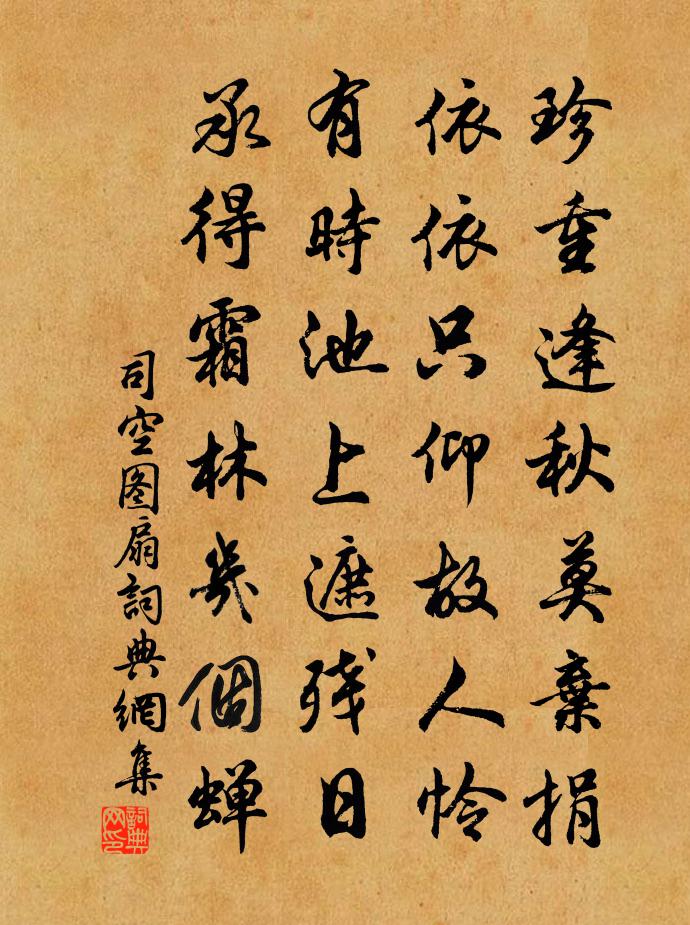 珍重逢秋莫棄捐
依依只仰故人怜
有時池上遮残日
承得霜林幾個蝉
司空图扇詞典網集
詞典网印